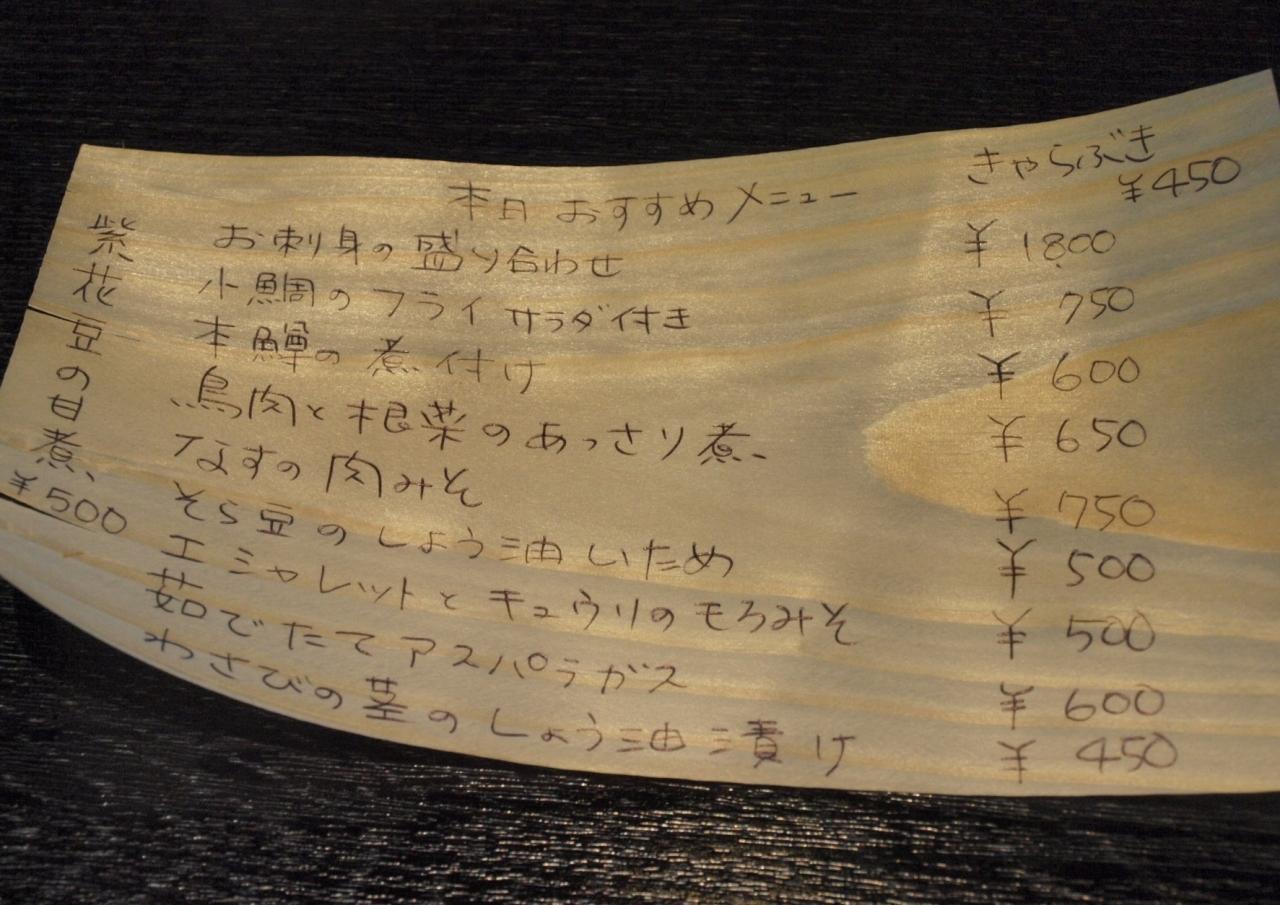 本日おすすめメニュー
きゃらぶき
¥450
お刺身の盛り合わせ ¥1800
小鯛のフライ サラダ付き ¥750
本鱒の煮付け ¥600
鳥肉と根菜のあっさり煮 ¥650
なすの肉みそ ¥750
そら豆のしょう油いため ¥500
エシャレットとキュウリのもろみそ ¥500
茹でたてアスパラガス ¥600
わさびの茎のしょう油漬け ¥450
紫花豆の甘煮
¥500